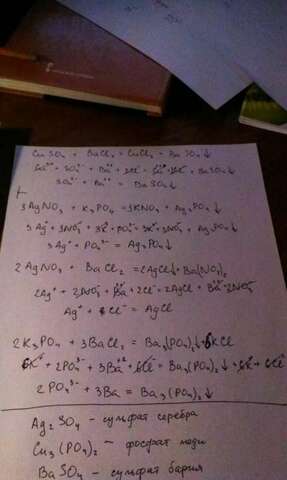 CuSO₄ + BaCl₂ = CuCl₂ + BaSO₄↓
Cu²⁺ + SO₄²⁻ + Ba²⁺ + 2Cl⁻ = Cu²⁺ + 2Cl⁻ + BaSO₄↓
SO₄²⁻ + Ba²⁺ = BaSO₄↓
3AgNO₃ + K₃PO₄ = 3KNO₃ + Ag₃PO₄↓
3Ag⁺ + 3NO₃⁻ + 3K⁺ + PO₄³⁻ = 3K⁺ + 3NO₃⁻ + Ag₃PO₄↓
3Ag⁺ + PO₄³⁻ = Ag₃PO₄↓
2AgNO₃ + BaCl₂ = 2AgCl↓ + Ba(NO₃)₂
2Ag⁺ + 2NO₃⁻ + Ba²⁺ + 2Cl⁻ = 2AgCl↓ + Ba²⁺ 2NO₃⁻
Ag⁺ + Cl⁻ = AgCl
2K₃PO₄ + 3BaCl₂ = Ba₃(PO₄)₂↓ + 6KCl
6K⁺ + 2PO₄³⁻ + 3Ba⁺² + 6Cl⁻ = Ba₃(PO₄)₂↓ + 6K⁺ + 6Cl⁻
2PO₄³⁻ + 3Ba = Ba₃(PO₄)₂↓
Ag₂SO₄ – сульфат серебра
Cu₃(PO₄)₂ – фосфат меди
BaSO₄ – сульфат бария